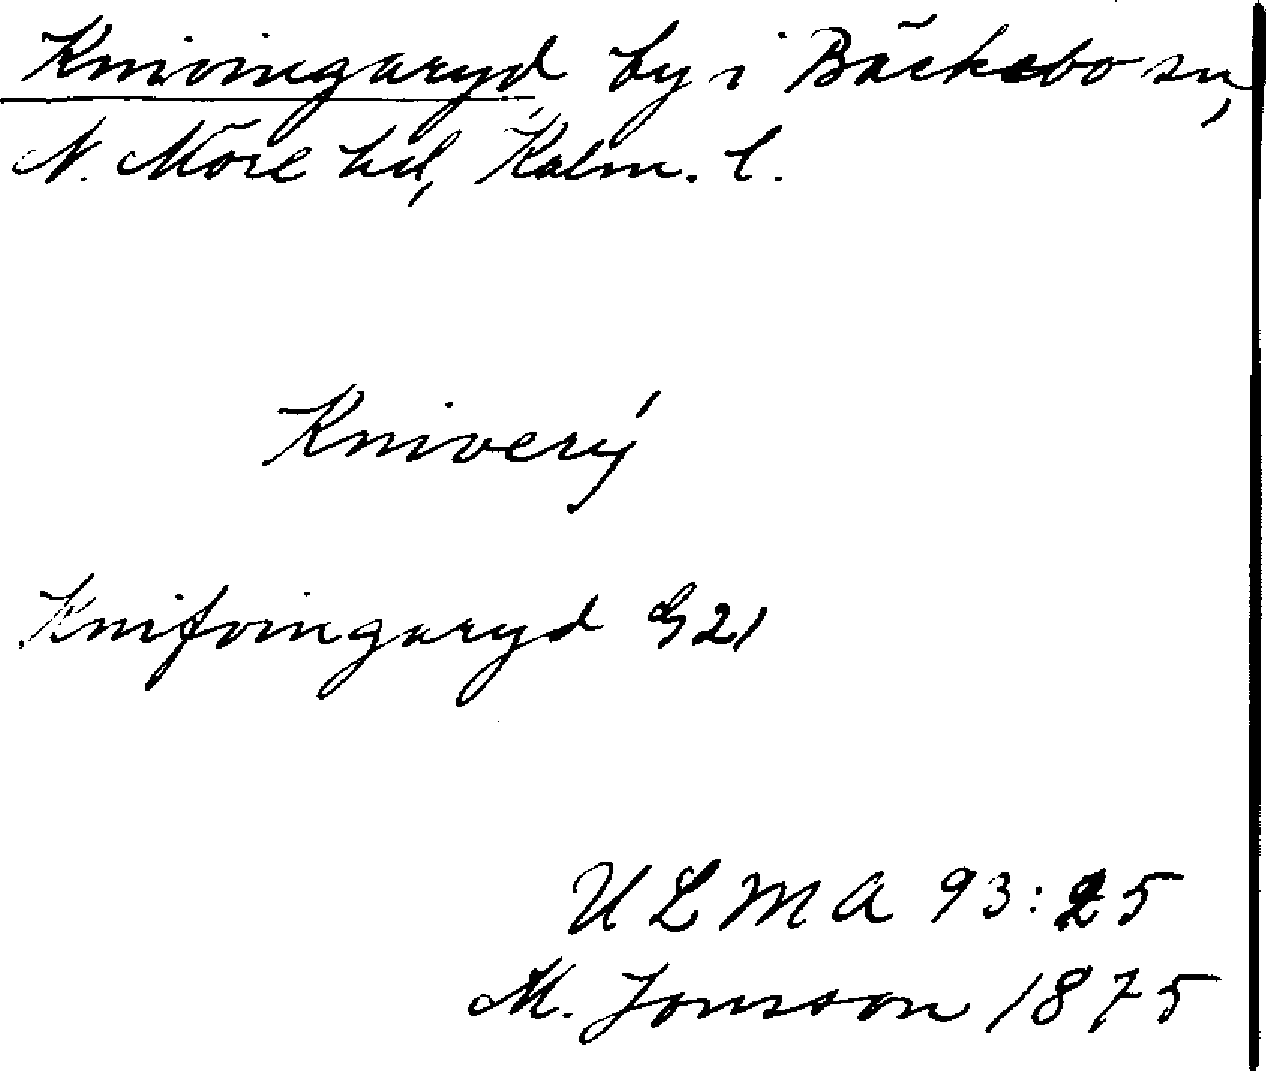 Knivingaryd by i Bäckebo sn,
N. Möre hd, Kalm. l.
Kniverý
Knifvingaryd G21
ULMA 93:25
M. Jonsson 1875